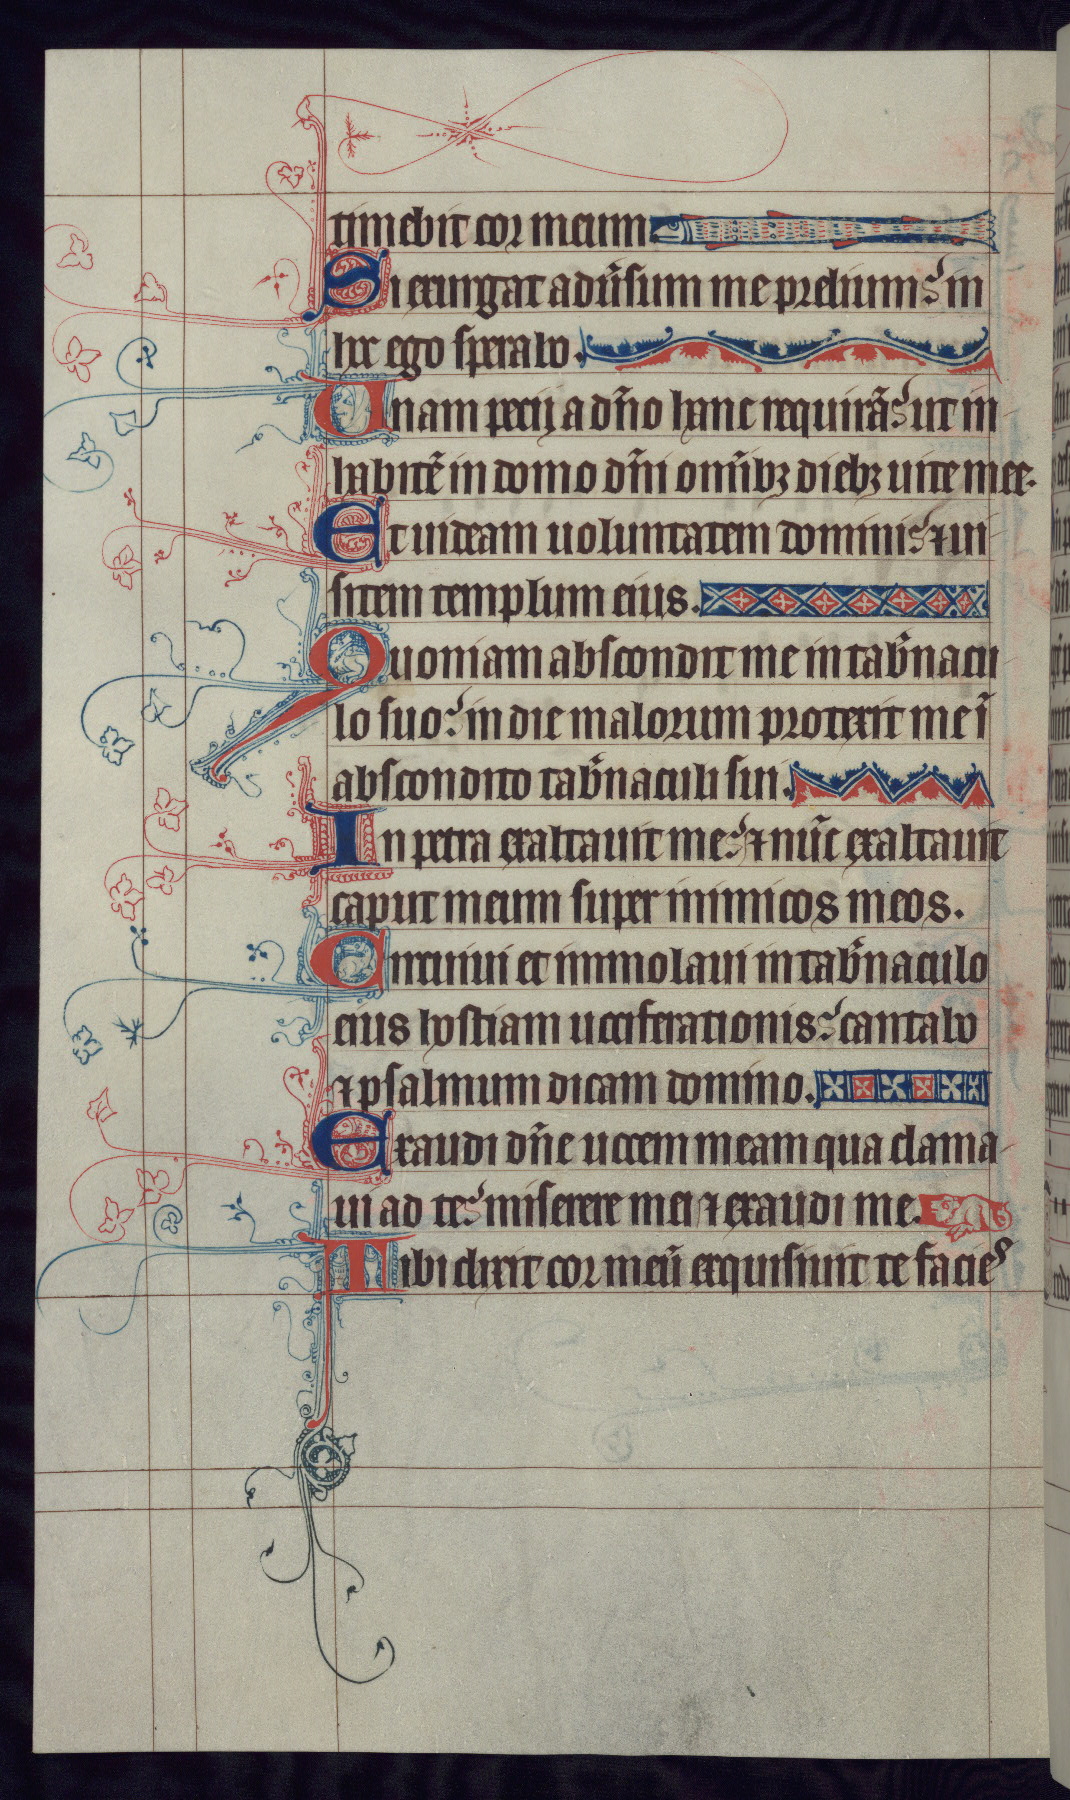 timebit cor meum
Si exurgat adũsum me prelium: in
hoc ego sperabo.
Unam pecij a dño hanc requirã: ut in
habitẽ in domo dñi omĩbꝫ diebꝫ uite mee.
Et uideam uoluntatem domini: ⁊ ui
sitem templum eius.
Quoniam abscondit me in tab̃nacu
lo suo: in die malorum protexit me ĩ
abscondito tab̃naculi sui.
In petra exaltauit me: ⁊ nũc exaltauit
caput meum super inimicos meos.
Circuiui et immolaui in tab̃naculo
eius hostiam uociferationis: cantabo
⁊ psalmum dicam domino.
Exaudi dñe uocem meam qua clama
ui ad te: miserere mei ⁊ exaudi me.
Tibi dixit cor meũ exquisiuit te facies